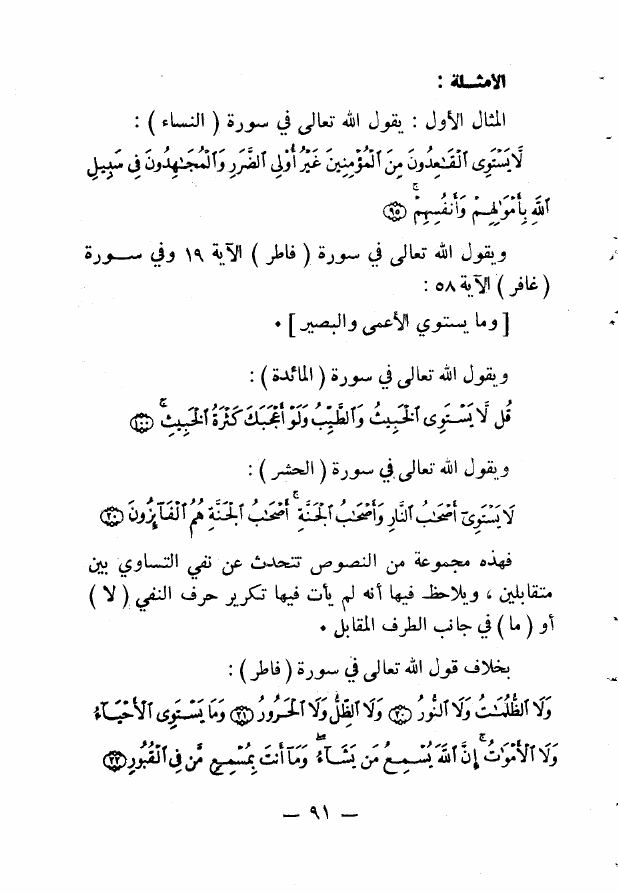 الأمثـلة :
المثال الأول : يقول الله تعالى في سورة ( النساء ) :
لَّا يَسْتَوِى الْقَاعِدُونَ مِنَ الْمُؤْمِنِينَ غَيْرُ أُوْلِى الضَّرَرِ وَالْمُجَاهِدُونَ فِى سَبِيلِ
اللَّهِ بِأَمْوَالِهِمْ وَأَنفُسِهِمْ ۚ ۝٩٥
ويقول الله تعالى في سورة ( فاطر ) الآية ١٩ وفي سـورة
( غافر ) الآية ٥٨ :
[ وما يستوي الأعمى والبصير ] ٠
ويقول الله تعالى في سورة ( المائدة ) :
قُل لَّا يَسْتَوِى الْخَبِيثُ وَالطَّيِّبُ وَلَوْ أَعْجَبَكَ كَثْرَةُ الْخَبِيثِ ۚ ۝١٠٠
ويقول الله تعالى في سورة ( الحشر ) :
لَا يَسْتَوِىٓ أَصْحَابُ النَّارِ وَأَصْحَابُ الْجَنَّةِ ۚ أَصْحَابُ الْجَنَّةِ هُمُ الْفَآئِزُونَ ۝٢٠
فهذه مجموعة من النصوص تتحدث عن نفي التساوي بين
متقابلين ، ويلاحظ فيها أنه لم يأت فيها تكرير حرف النفي ( لا )
أو ( ما ) في جانب الطرف المقابل ٠
بخلاف قول الله تعالى في سورة ( فاطر ) :
وَلَا الظُّلُمَاتُ وَلَا النُّورُ ۝٢٠ وَلَا الظِّلُّ وَلَا الْحَرُورُ ۝٢١ وَمَا يَسْتَوِى الْأَحْيَآءُ
وَلَا الْأَمْوَاتُ ۚ إِنَّ اللَّهَ يُسْمِعُ مَن يَشَآءُ ۖ وَمَآ أَنتَ بِمُسْمِعٍ مَّن فِى الْقُبُورِ ۝٢٢
— ٩١ —